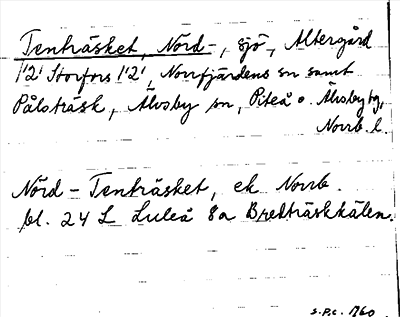 Tenträsket, Nörd-, sjö, Altergård
1'2' Storfors 1'2', Norrfjärdens sn samt
Pålsträsk, Älvsby sn, Piteå o. Älvsby tg,
Norrb. l.
Nörd-Tenträsket, ek Norrb.
bl. 24 L Luleå 8a Bredträskkälen.
S.P.C. 1960